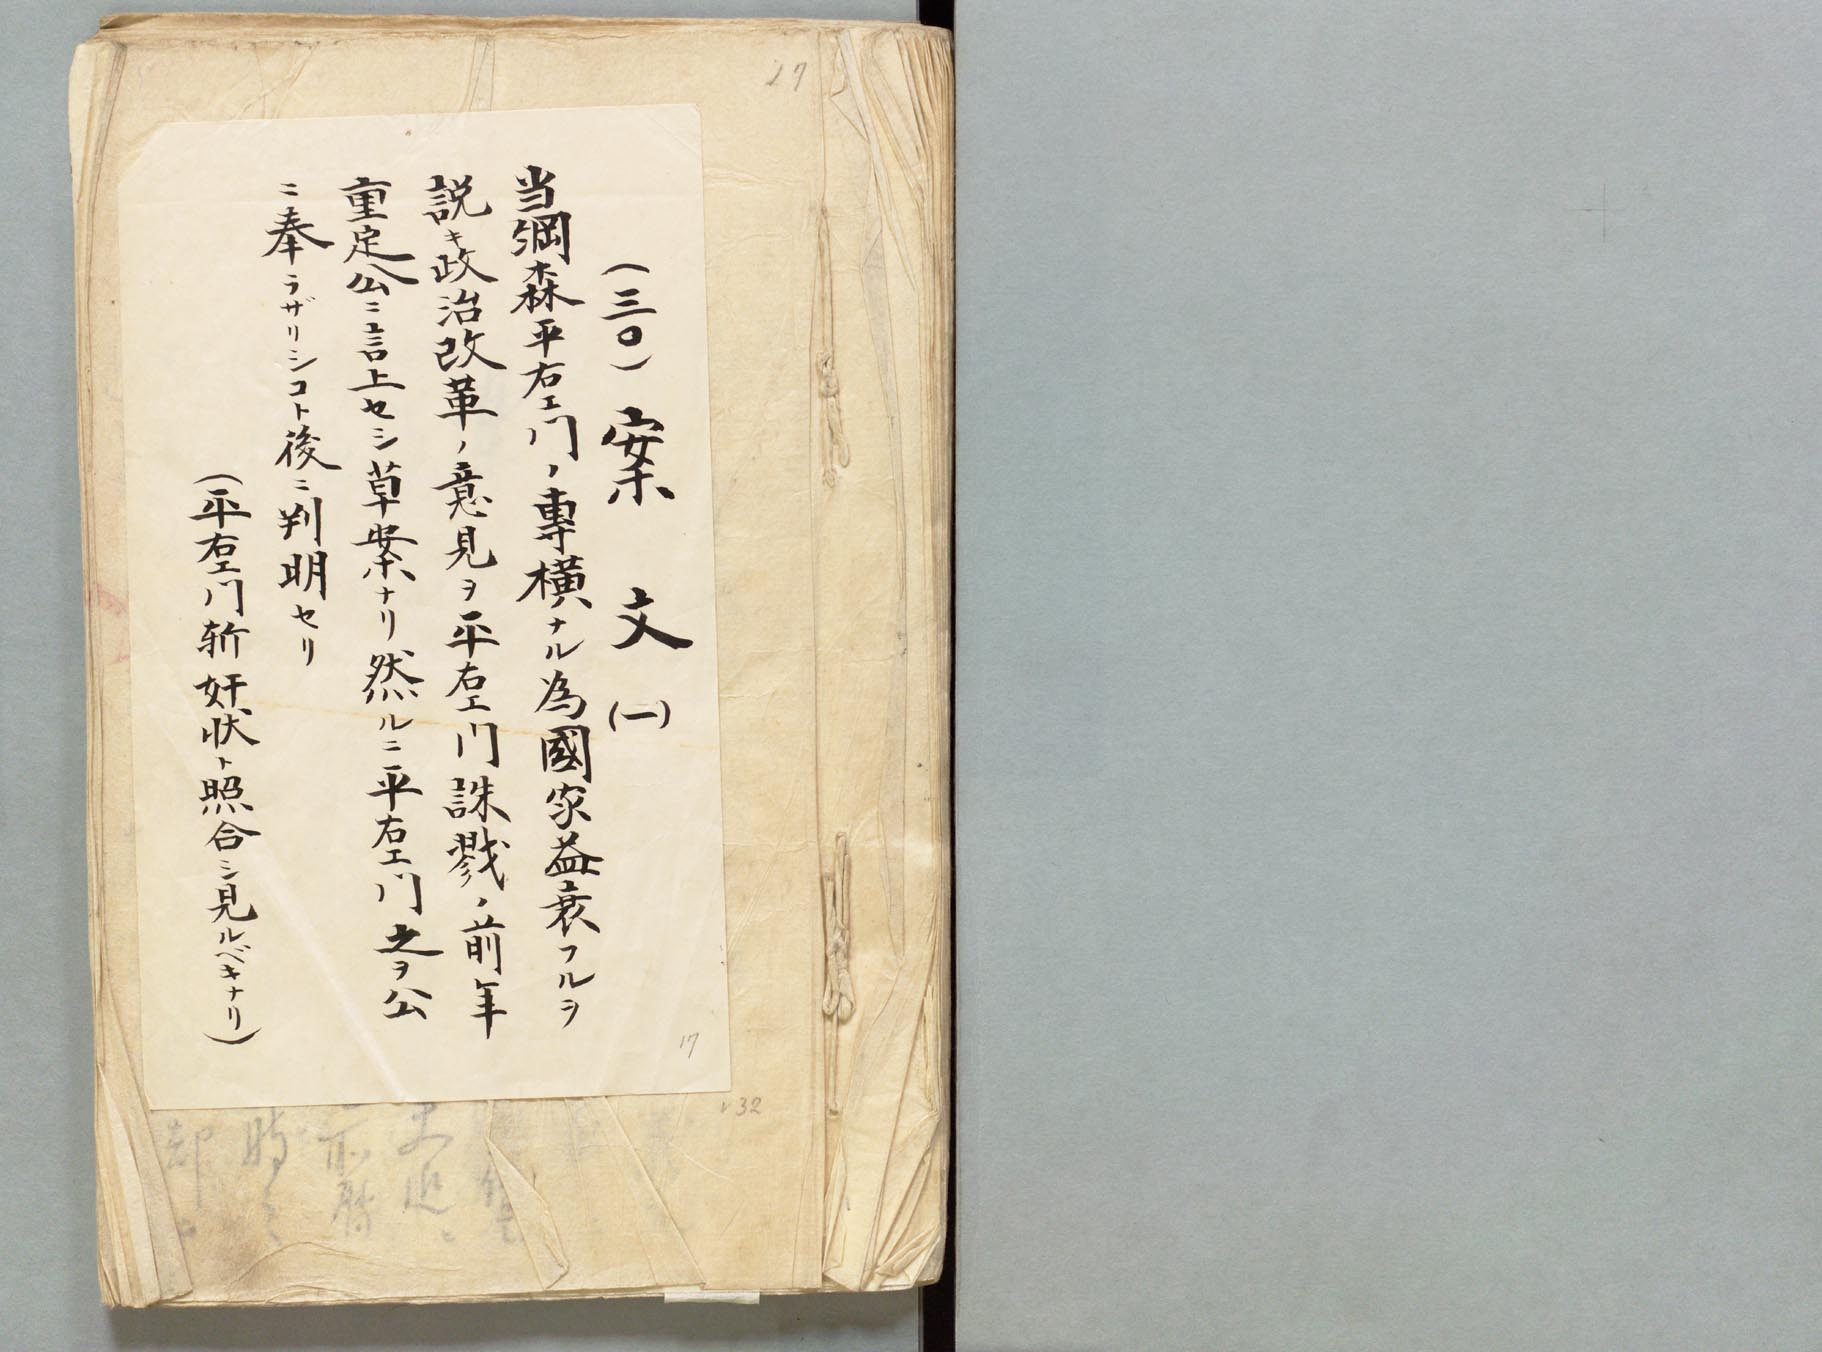 27
(三〇) 案 文 (一)
当綱森平右エ門ノ專横ナル為國家益衰フルヲ
説キ政治改革ノ意見ヲ平右エ門誅戮ノ前年
重定公ニ言上セシ草案ナリ然ルニ平右エ門之ヲ公
ニ奉ラザリシコト後ニ判明セリ
(平右エ門斬奸状ト照合シ見ルベキナリ)
17
32